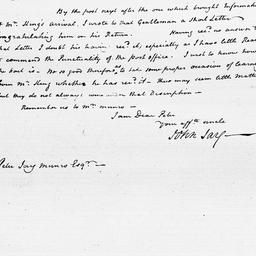 By the post next after the one which brought Information
of Mr. King's arrival, I wrote to that Gentleman a short Letter
congratulating him on his Return. Having recd. no answer to
that Letter I doubt his having recd. it, especially as I have little Reason
to commend the Punctuality of the post office. I wish to know how
the fact is — be so good therefore as to take some proper occasion of learning
from Mr. King whether he has recd. it — this may seem little Matter
but they do not always on that Description —
Remember us to Mrs. Munro —
I am Dear Peter
your affte. uncle
John Jay —
Peter Jay Munro Esqr. —